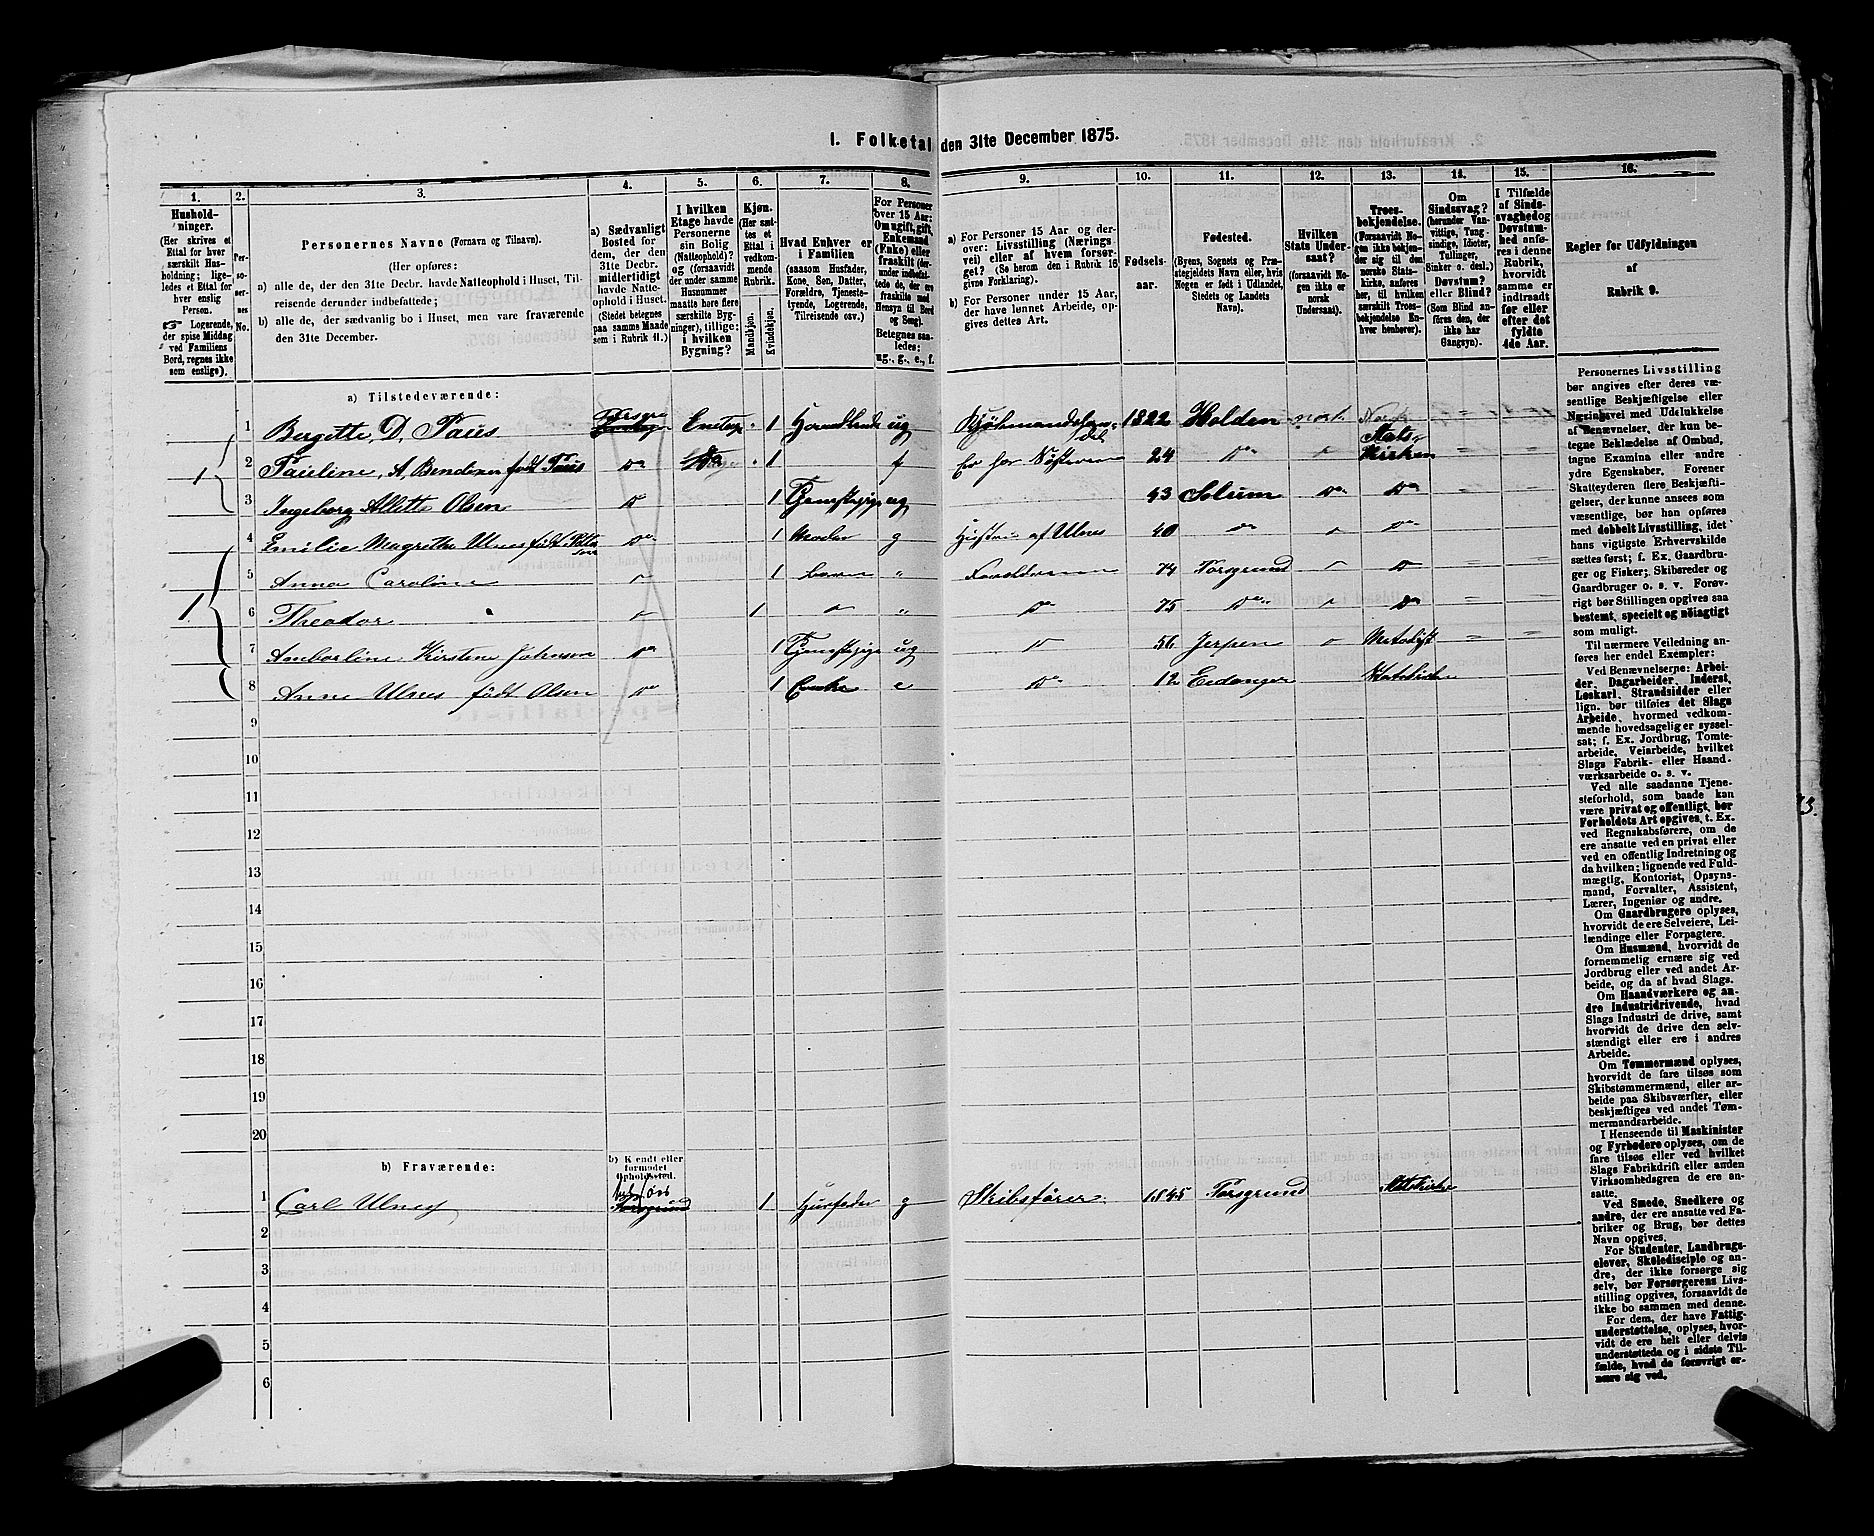 I. Folketal den 31te December 1875.
1.
2.
3.
4.
5.
6.
7.
8.
9.
10.
11.
12.
13.
14.
15.
16.
Hushold-
ninger.
(Her skrives et
Ettal for hver
særskilt Hus-
holdning; lige-
ledes et Ettal for
hver enslig
Person.
☞ Logerende,
der spise Middag
ved Familiens
Bord, regnes ikke
som enslige).
Per-
so-
ner-
nes
No.
Personernes Navne (Fornavn og Tilnavn).
(Her opføres:
a) alle de, der den 31te Decbr. havde Natteophold i Huset, Til-
reisende derunder indbefattede;
b) alle de, der sædvanlig bo i Huset, men vare fraværende
den 31te December.
a) Sædvanligt
Bosted for
dem, der den
31te Decbr.
midlertidigt
havde Natte-
ophold i Huset.
(Stedet betegnes
paa samme Maade
som i Rubrik 11.)
I hvilken
Etage havde
Personerne
sin Bolig
(Natteophold)?
og (forsaavidt
der under samme
Husnummer
maatte høre flere
særskilte Byg-
ninger), tillige:
i hvilken
Bygning?
Kjøn.
(Her sæt-
tes et
Ettal i
vedkom-
mende
Rubrik.
Mandkjøn.
Kvindekjøn.
Hvad Enhver er
i Familien
(saasom Husfader,
Kone, Søn, Datter,
Forældre, Tjeneste-
tyende, Logerende,
Tilreisende osv.)
For Personer
over 15 Aar:
Om ugift, gift,
Enkemand
(Enke) eller
fraskilt (her-
under indbefat-
tede de, der ere
fraskilte med
Hensyn til Bord
og Seng).
Betegnes saa-
ledes:
ug., g., e., f.
a) For Personer 15 Aar og der-
over: Livsstilling (Nærings-
vei) eller af hvem forsør-
get? (Se herom den i Rubrik 16
givne Forklaring).
b) For Personer under 15 Aar,
der have lønnet Arbeide, op-
gives dettes Art.
Fødsels-
aar.
Fødested.
(Byens, Sognets og Præ-
stegjeldets Navn eller, hvis
Nogen er født i Udlandet,
Stedets og Landets
Navn).
Hvilken
Stats Under-
saat?
(forsaavidt No-
gen ikke er
norsk
Undersaat).
Troes-
bekjendelse.
(Forsaavidt No-
gen ikke bekjen-
der sig til den
norske Stats-
kirke, anføres
her, til hvilken
særskilt Troes-
bekjendelse En-
hver henhører).
Om
Sindssvag?
(herunder Van-
vittige, Tung-
sindige, Idioter,
Tullinger,
Sinker o. desl.)
Døvstum?
eller Blind?
(Som Blind an-
føres den, der
ikke har
Gangsyn).
I Tilfælde
af Sinds-
svaghed og
Døvstum-
hed anfø-
res i denne
Rubrik,
hvorvidt
samme er
indtraadt
før eller
efter det
fyldte
4de Aar.
Regler for Udfyldningen
af
Rubrik 9.
a) Tilstedeværende:
1 Bergette, D, Paus Porsgr Enetag " 1 ug 1822 Holden norsk Norsk Stats-
2 Pauline, A, Bendixen født Paus Do Do " 1 f 24 Do Kirken
1 3 Ingeborg Allette Olsen Do 1 ug 43 Solum Do Do
4 Emilie Magrethe Ulnes født Do 1 Moder g af Ulnes 40 Do Do
5 Anna Caroline 1 Barn " Forældrerne 74 Porsgrund Do
1 6 Theodor 1 " Do 75 Do Do
7 Amborline Kirstine Johnsen Do 1 ug Do 56 Jerpen Metodist
8 Anne Ulnes født Olsen Do 1 Enke e Do 12 Eidanger Statskirke
9
10
11
12
13
14
15
16
17
18
19
20
b) Fraværende:
b) Kendt eller
formodet
Opholdssted.
1 Carl Ulnes Porsgrund 1 Husfader g Skibsfører 1845 Porsgrund Statskirke
2
3
4
5
6
Personernes Livsstilling
bør angives efter deres væ-
sentlige Beskjæftigelse eller
Næringsvei med Udelukkelse
af Benævnelser, der kun be-
tegne Beklædelse af Ombud,
tagne Examina eller andre
ydre Egenskaber. Forener
Skatteyderen flere Beskjæfti-
gelser, der kunne ansees som
væsentlige, bør han opføres
med dobbelt Livsstilling, idet
hans vigtigste Erhvervskilde
sættes først; f. Ex. Gaardbru-
ger og Fisker; Skibsreder og
Gaardbruger o. s. v. Forøv-
rigt bør Stillingen opgives saa
bestemt, specielt og nøiagtigt
som muligt.
Til nærmere Veiledning an-
føres her endel Exempler:
Ved Benævnelserne: Arbei-
der, Dagarbeider, Inderst,
Løskarl, Strandsidder eller
lign. bør tilføies det Slags
Arbeide, hvormed vedkom-
mende hovedsagelig er syssel-
sat; f. Ex. Jordbrug, Tomte-
arbeide, Veiarbeide, hvilket
Slags Fabrik- eller Haand-
værksarbeide o. s. v.
Ved alle saadanne Tjene-
steforhold, som baade kan
være privat og offentligt, bør
Forholdets Art opgives, t. Ex.
ved Regnskabsførere, om de
ere ansatte ved en privat eller
ved en offentlig Indretning og
da hvilken; lignende ved Fuld-
mægtig, Kontorist, Opsyns-
mand, Forvalter, Assistent,
Lærer, Ingeniør og andre.
Om Gaardbrugere oplyses,
hvorvidt de ere Selveiere, Lei-
lændinge eller Forpagtere.
Om Husmænd, hvorvidt de
fornemmelig ernære sig ved
Jordbrug eller ved andet Ar-
beide, og da af hvad Slags.
Om Haandværkere og an-
dre Industridrivende, hvad
Slags Industri de drive, samt
hvorvidt de drive den selv-
stændigt eller ere i andres
Arbeide.
Om Tømmermænd oplyses,
hvorvidt de fare tilsøs som
Skibstømmermænd, eller ar-
beide paa Skibsværfter, eller
beskjæftiges ved andet Tøm-
mermandsarbeide.
I Henseende til Maskinister
og Fyrbødere oplyses, om de
fare tilsøs eller ved hvilket
Slags Fabrikdrift eller anden
Virksomhedsgren de ere an-
satte.
Ved Smede, Snedkere og
andre, der ere ansatte ved Fa-
briker og Brug, bør dettes
Navn opgives.
For Studenter, Landbrugs-
elever, Skoledisciple og an-
dre, der ikke forsørge sig
selv, bør Forsørgerens Livs-
stilling opgives, forsaavidt de
ikke bo sammen med denne.
For dem, der have Fattig-
understøttelse, oplyses, hvor-
vidt de ere helt eller delvis
understøttede og i sidste Til-
fælde, hvad de forøvrigt er-
nære sig ved.